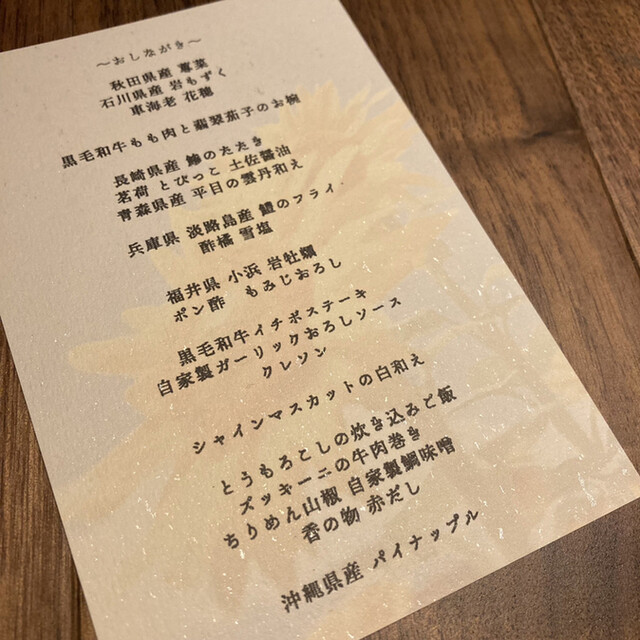 ～おしながき～
秋田県産 蓴菜
石川県産 岩もずく
車海老 花穂
黒毛和牛もも肉と翡翠茄子のお椀
長崎県産 鰺のたたき
茗荷 とびっこ 土佐醤油
青森県産 平目の雲丹和え
兵庫県 淡路島産 鱧のフライ
酢橘 雪塩
福井県 小浜 岩牡蠣
ポン酢 もみじおろし
黒毛和牛イチボステーキ
自家製ガーリックおろしソース
クレソン
シャインマスカットの白和え
とうもろこしの炊き込みご飯
ズッキーニの牛肉巻き
ちりめん山椒 自家製鯛味噌
香の物 赤だし
沖縄県産 パイナップル